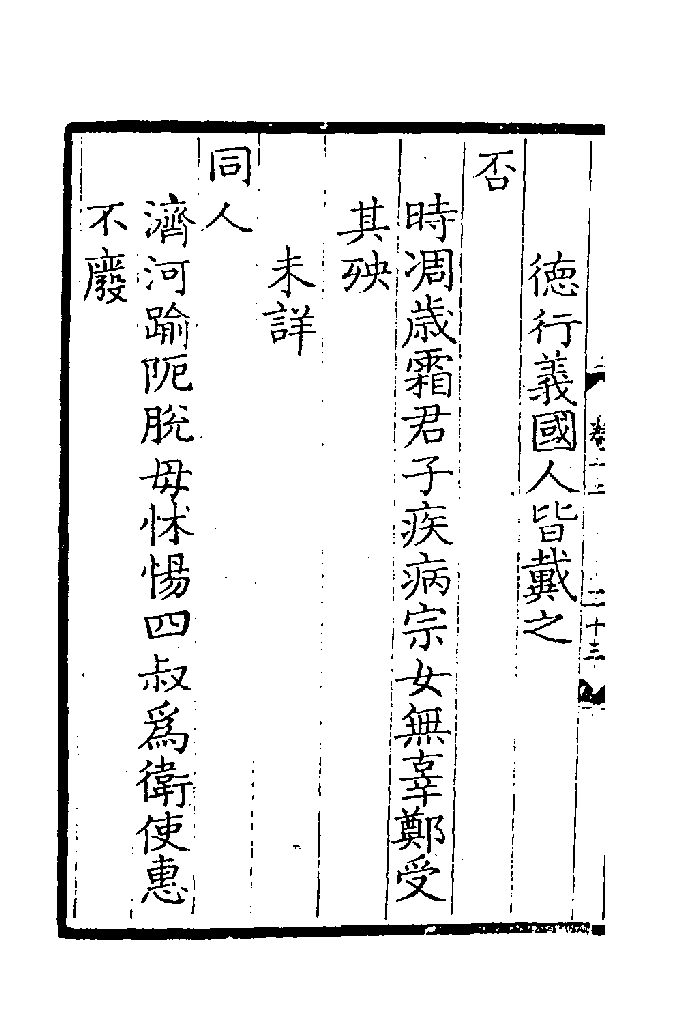 德行義國人皆戴之
否
時凋歳霜君子疾病宗女無辜鄭受
其殃
未詳
同人
濟河踰阨脫毋怵惕四叔爲衛使惠
不廢
二十三